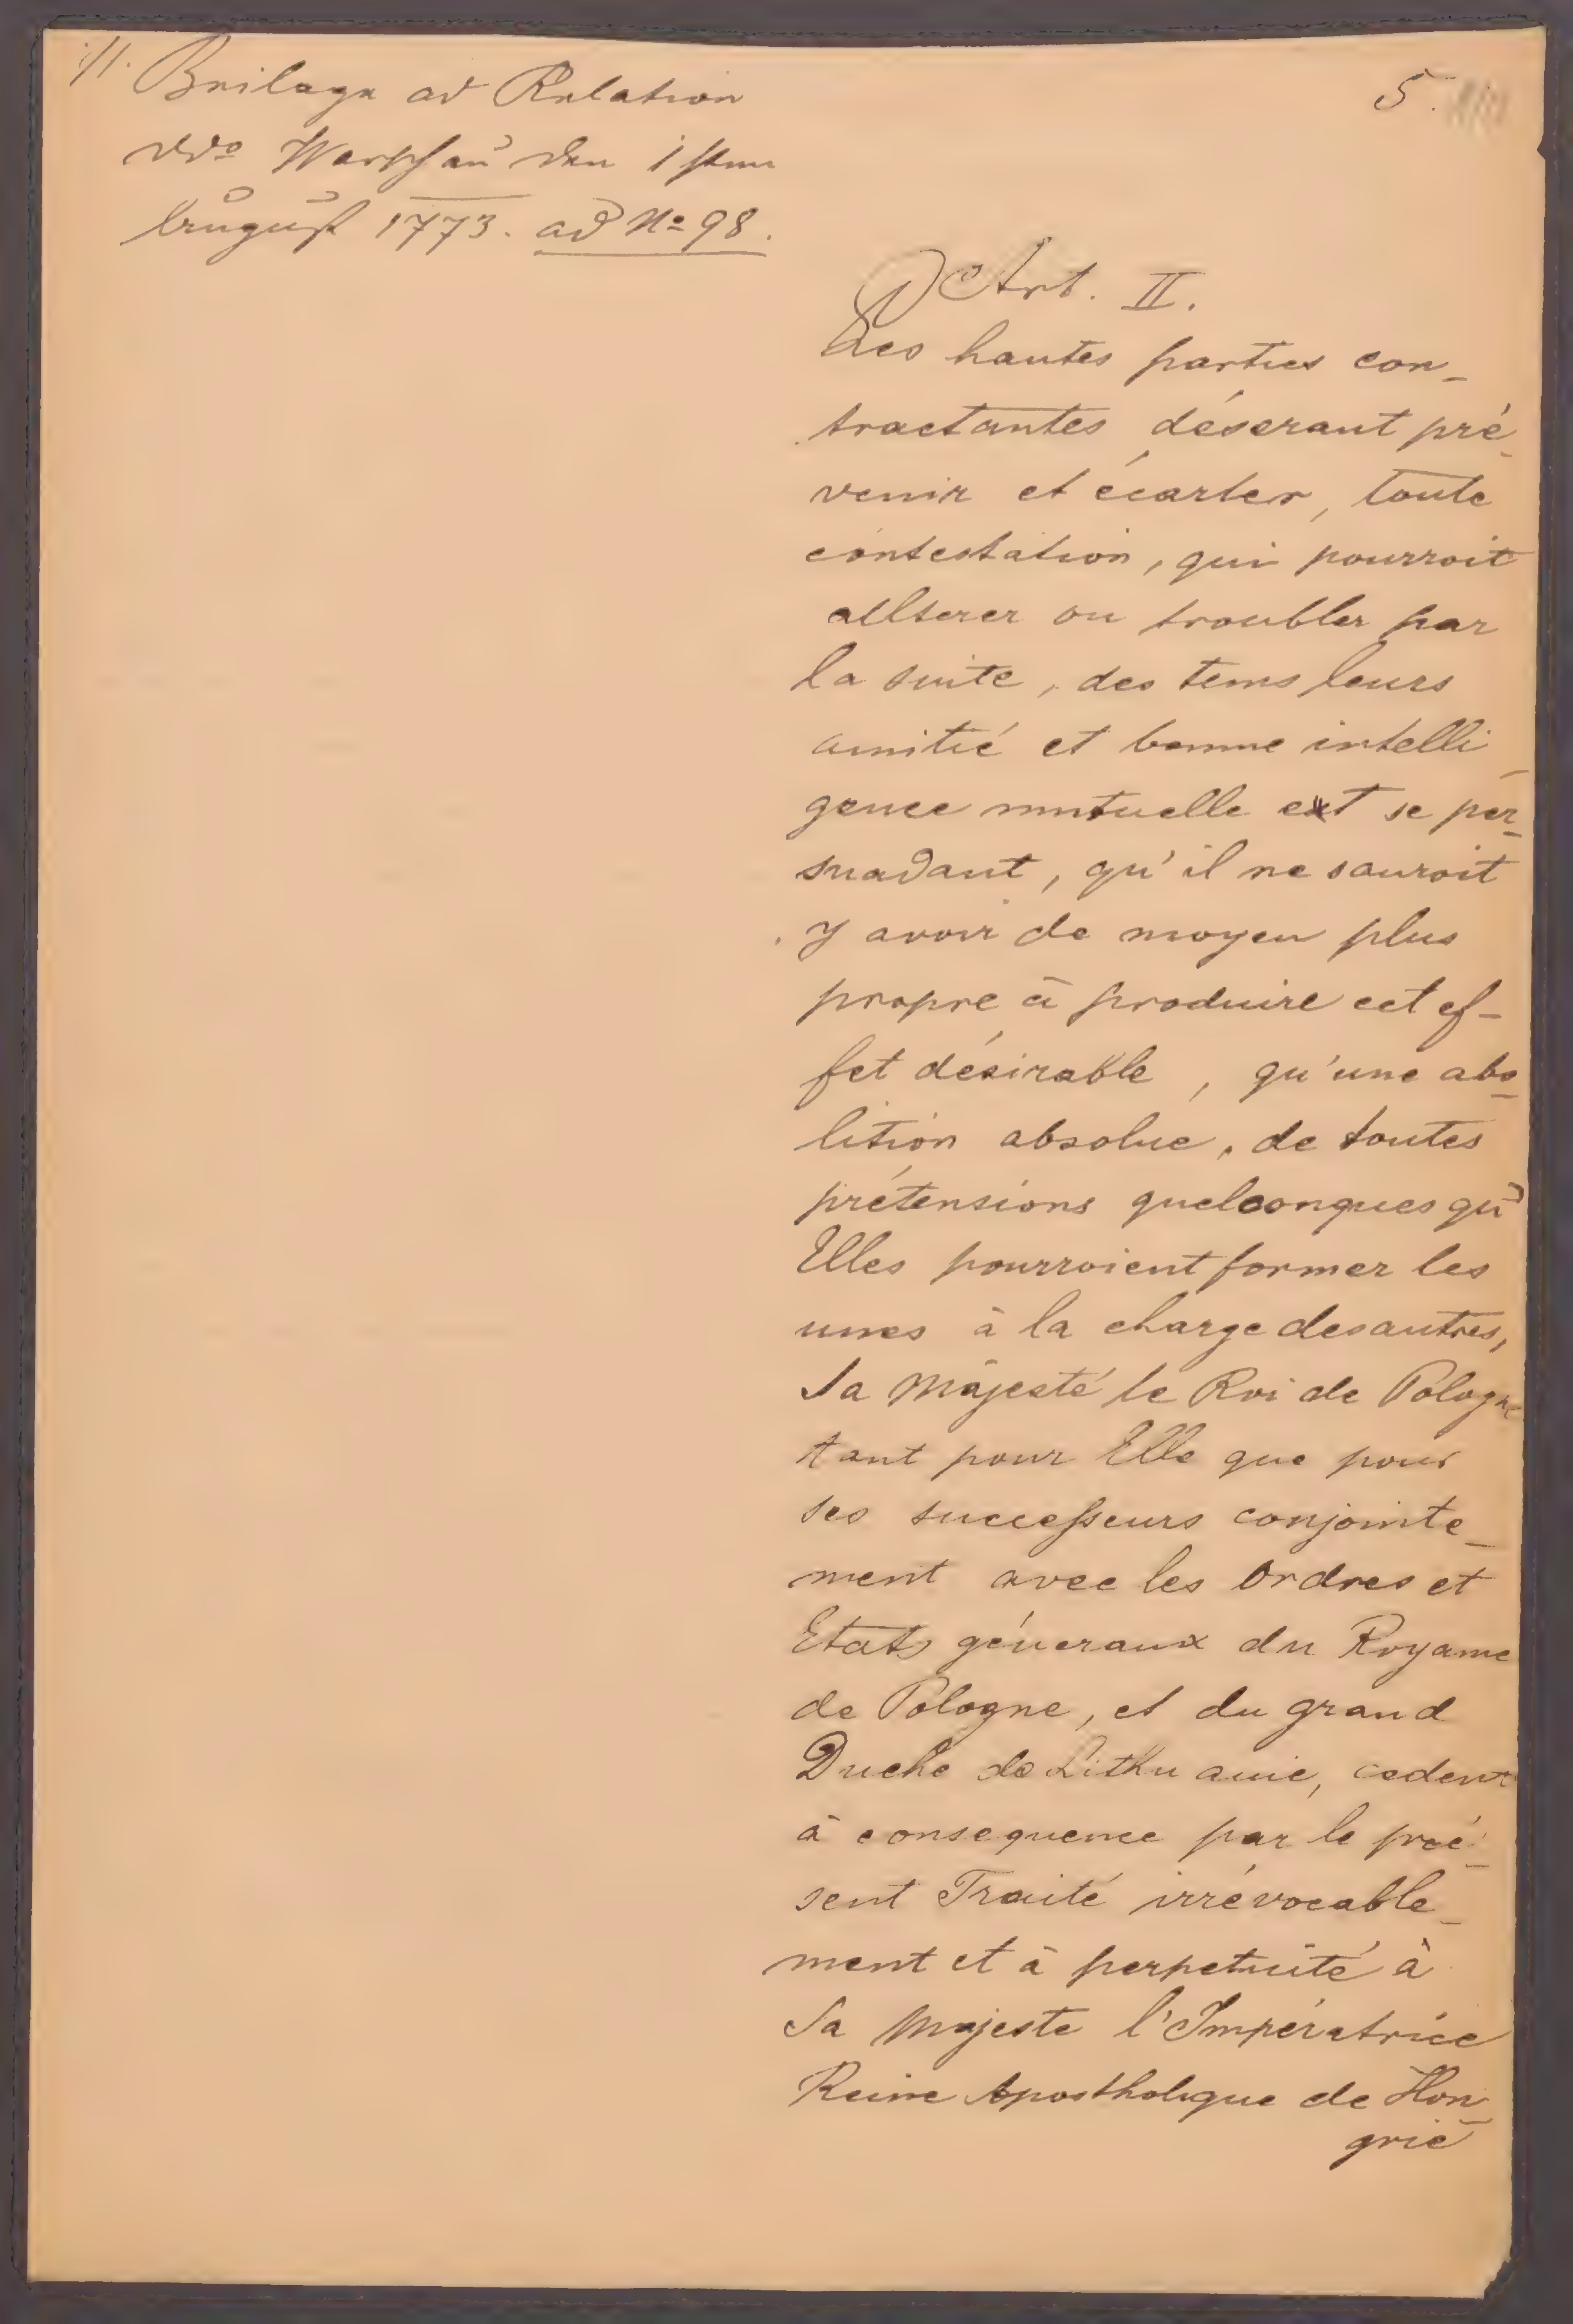 ·/1. Beilage ad Relation
ddo Warschau den 1sten
August 1773. ad No 98.
5.
Art. II.
Les hautes parties con-
tractantes déserant pré-
venir et écarter, toute
contestation, qui pourroit
allterer ou troubler par
la suite, des tems leurs
amitié et bonne intelli-
gence mutuelle et se per-
suadant, qu'il ne sauroit
y avoir de moyen plus
propre à produire cet ef-
fet désirable, qu'une abo-
lition absolue, de toutes
prétensions quelconques qu'
Elles pourroient former les
unes à la charge des autres,
Sa Majesté le Roi de Pologne
tant pour Elle que pour
ses successeurs conjointe-
ment avec les Ordres et
Etats géneraux du Royame
de Pologne, et du grand
Duche de Lithuanie, cedent
à consequence par le pré-
sent Traité irrévocable-
ment et à perpetuité à
Sa Majeste l'Impératrice
Reine Apostholique de Hon-
grie